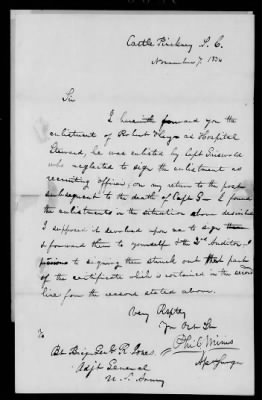 Castle Pinckney S. C.
November 7. 1834
Sir
I herewith forward you the
enlistment of Robert Hays as Hospital
Steward, he was enlisted by Capt Griswold
who neglected to sign the enlistment as
recruiting officer, on my return to the post
subsequent to the death of Capt G I found
the enlistments in the situation above described
I supposed it devolved upon me to sign
& forward them to yourself & the 2nd Auditor,
to signing them struck out that part
of the certificate which is contained in the second
line for the reason stated above.
Very Resply
Your Obt St
Phil G Minis
Asst Surgn
To
Bt Brig Genl R Jones.
Adjt General
U. S. Army